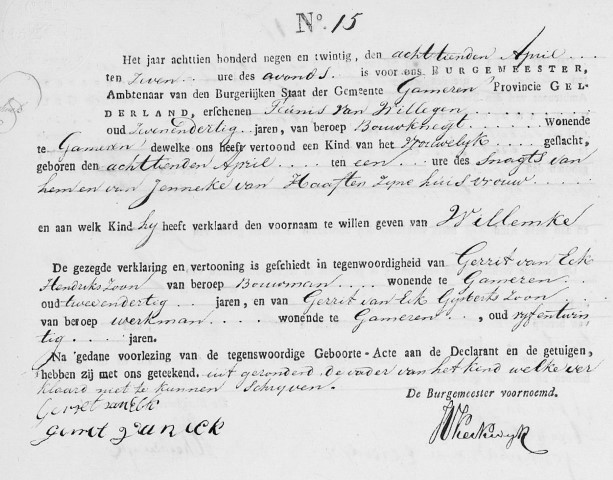 No. 15
Het jaar achttien honderd negen en twintig, den achttienden April
ten Zeven ure des avonds is voor ons BURGEMEESTER,
Ambtenaar van den Burgerlijken Staat der Gemeente Gameren Provincie GEL-
DERLAND, erschenen Teunis van Willigen
oud Zevenendertig jaren, van beroep Bouwknegt Wonende
te Gameren dewelke ons heeft vertoond een Kind van het Vrouwelyk geslacht,
geboren den achttienden April ten een ure des Snagts van
hem en van Jenneke van Haaften Zyne huisvrouw
en aan welk Kind hy heeft verklaard den voornaam te willen geven van Willemke
De gezegde verklaring en vertooning is geschiedt in tegenwoordigheid van Gerrit van Eck
Hendriks Zoon van beroep Bouwman wonende te Gameren
oud tweeendertig jaren, en van Gerrit van Eck Gysberts Zoon
van beroep werkman wonende te Gameren, oud vyfentwin
tig jaren.
Na gedane voorlezing van de tegenswoordige Geboorte-Acte aan de Declarant en de getuigen,
hebben zij met ons geteekend. uitgezonderd de vader van het kind welke ver
klaard niet te kunnen Schryven.
De Burgemeester voornoemd.
Gerret van Eck
gerret van eck